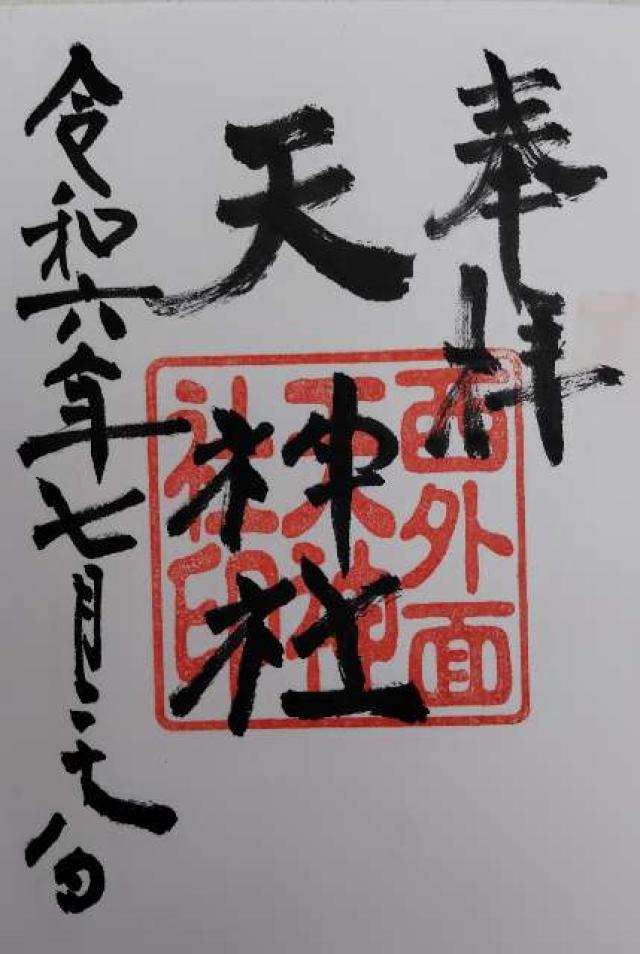 奉拝
天神社
西外面
天神
社印
令和六年七月